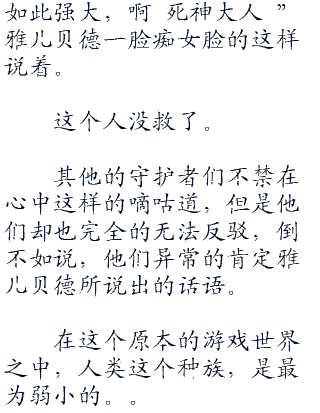 如此强大，啊 死神大人 ”
雅儿贝德一脸痴女脸的这样
说着。
这个人没救了。
其他的守护者们不禁在
心中这样的嘀咕道，但是他
们却也完全的无法反驳，倒
不如说，他们异常的肯定雅
儿贝德所说出的话语。
在这个原本的游戏世界
之中，人类这个种族，是最
为弱小的。。